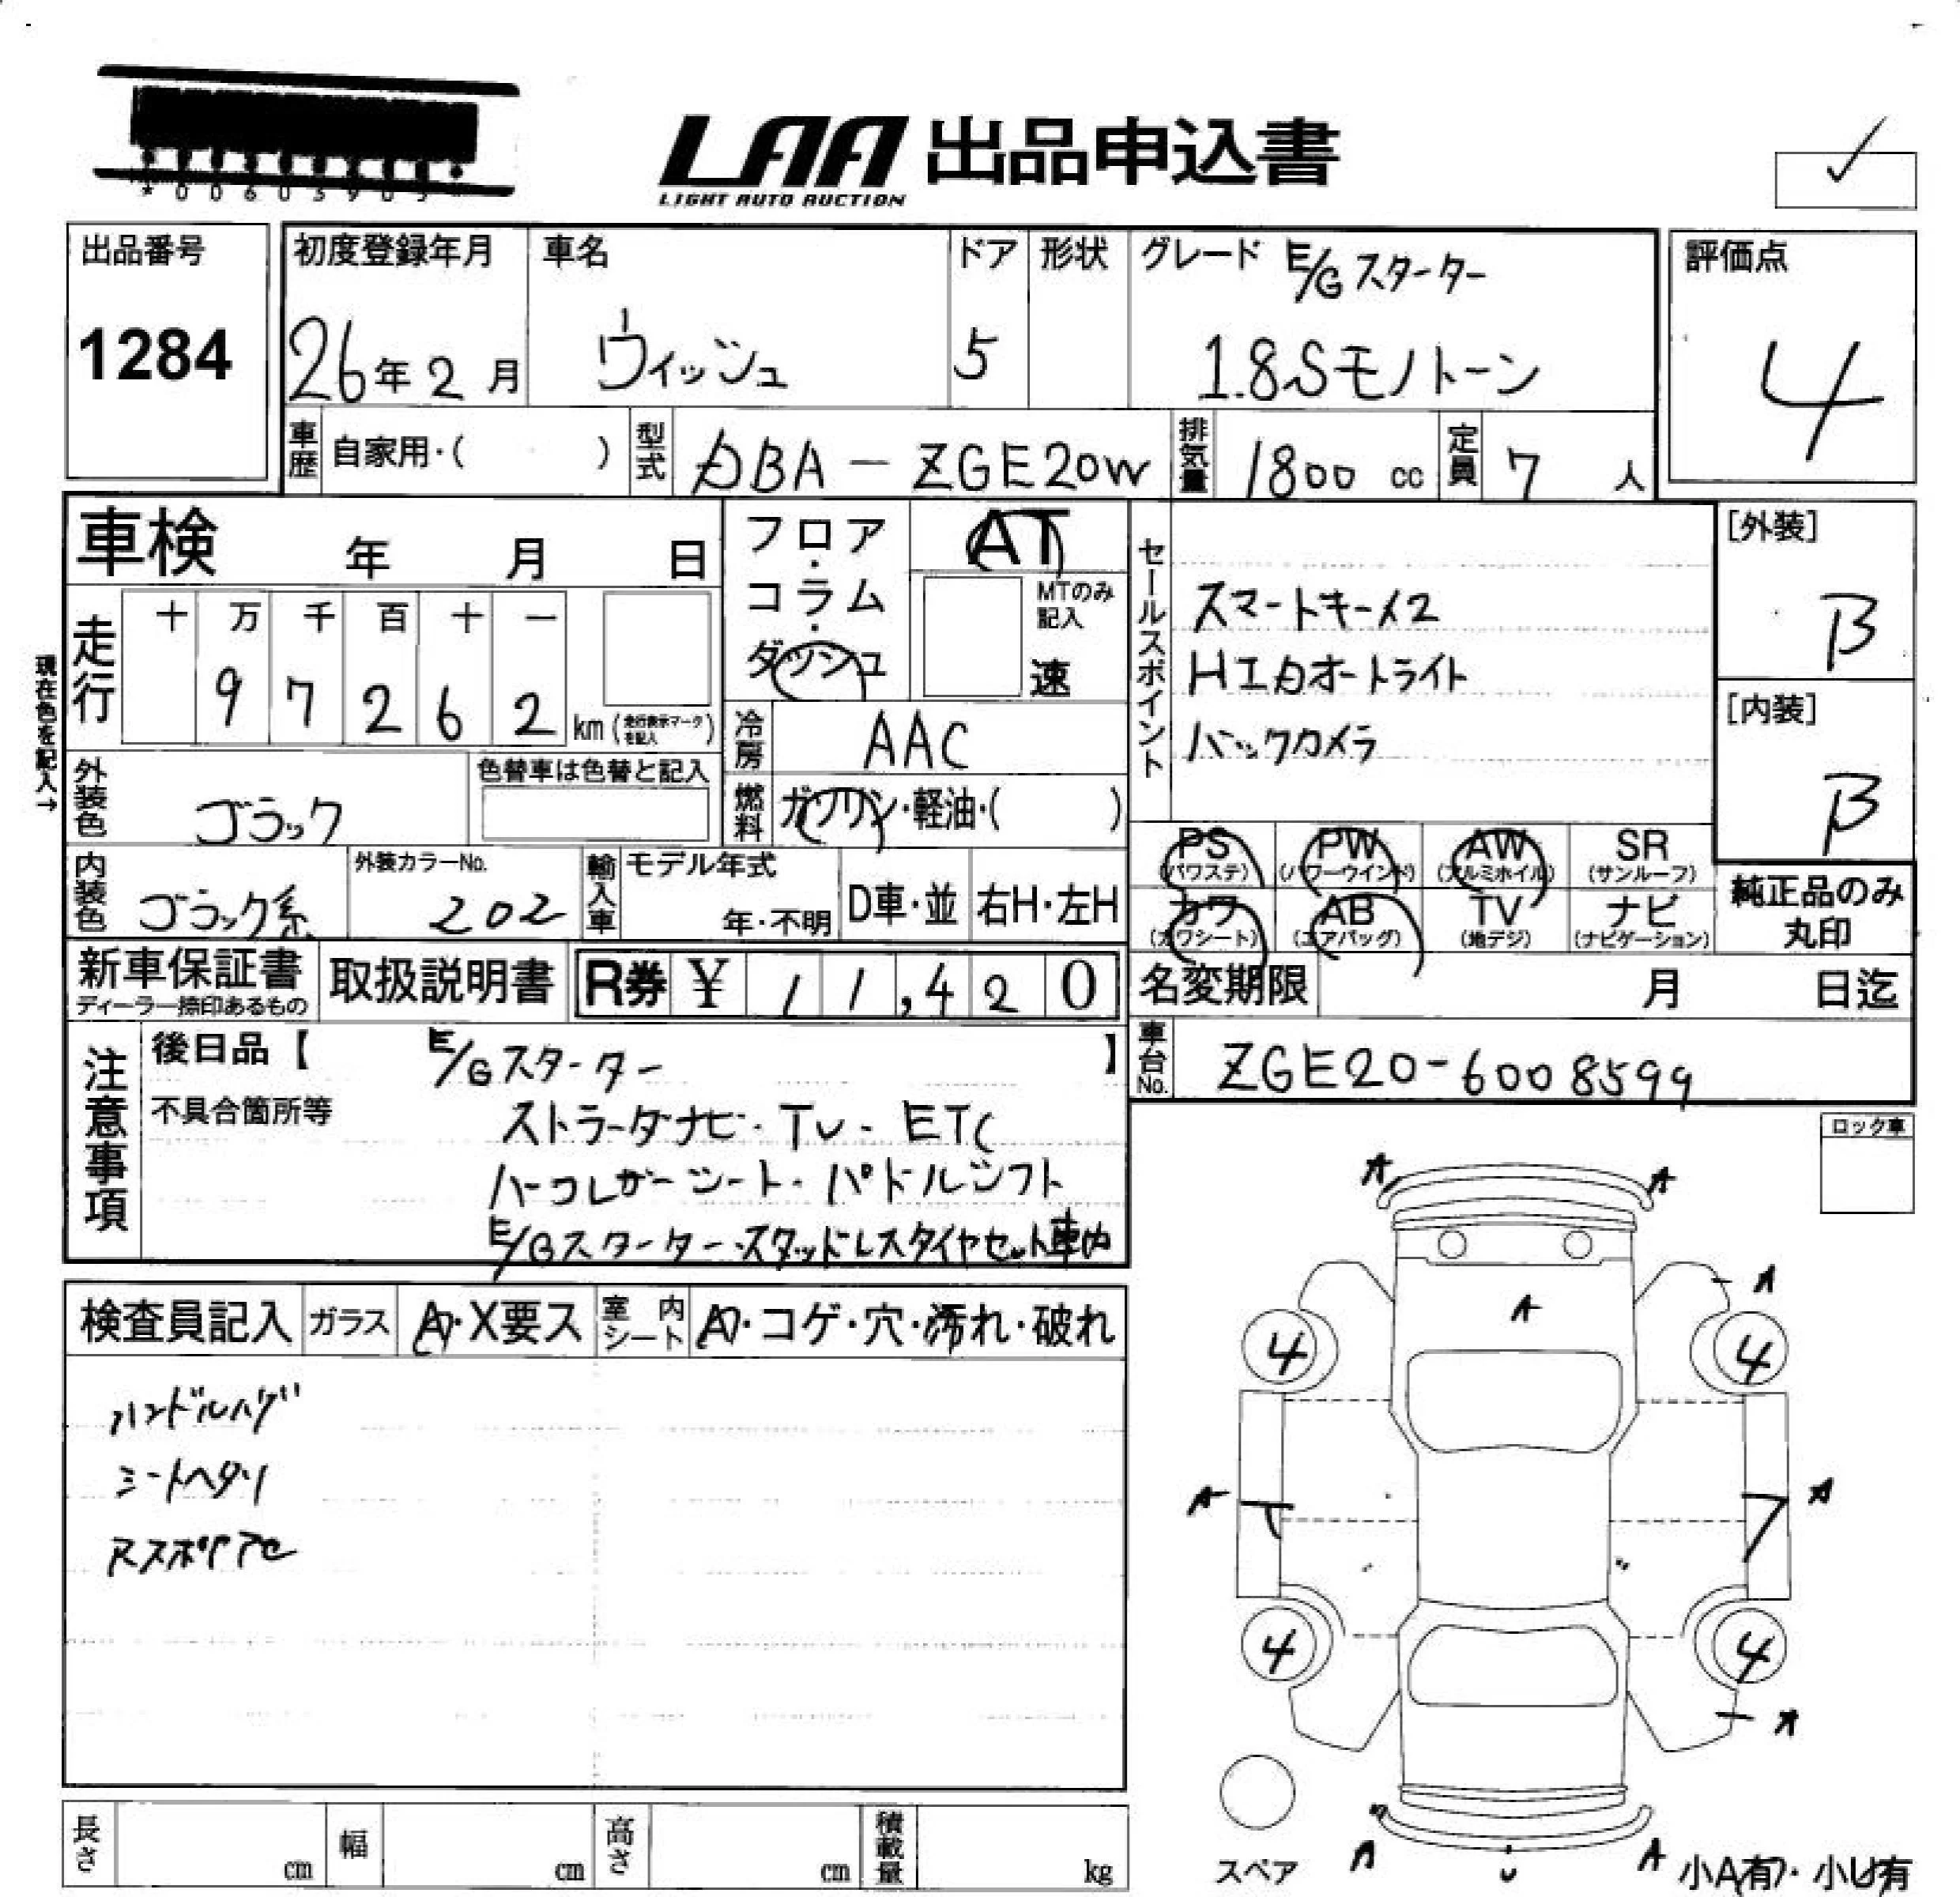 *00605903*
LAA 出品申込書
LIGHT AUTO AUCTION
出品番号
1284
初度登録年月
26年2月
車名
ウィッシュ
ドア
5
形状
グレード E/Gスターター
1.8Sモノトーン
評価点
4
車歴 自家用・( )
型式 DBA-ZGE20W
排気量 1800 cc
定員 7 人
車検 年 月 日
フロア・コラム・ダッシュ
AT
MTのみ記入
速
セールスポイント
スマートキー×2
HIDオートライト
バックカメラ
[外装]
B
[内装]
B
現在色を記入→
走行
十 万 千 百 十 一
9 7 2 6 2 km (走行表示マークを記入)
冷房 AAC
燃料 ガソリン・軽油・( )
外装色 ブラック
色替車は色替と記入
内装色 ブラック系
外装カラーNo.
202
輸入車
モデル年式
年・不明
D車・並
右H・左H
PS (パワステ)
PW (パワーウインド)
AW (アルミホイル)
SR (サンルーフ)
カワ (カワシート)
AB (エアバッグ)
TV (地デジ)
ナビ (ナビゲーション)
純正品のみ丸印
新車保証書
ディーラー捺印あるもの
取扱説明書
R券 ¥ 11,420
名変期限 月 日迄
車台No. ZGE20-6008599
注意事項
後日品【 E/Gスターター 】
不具合箇所等
ストラーダナビ・TV・ETC
ハーフレザーシート・パドルシフト
E/Gスターター・スタッドレスタイヤセット車内
ロック車
検査員記入
ガラス A・X要ス
室内シート A・コゲ・穴・汚れ・破れ
ハンドルハゲ
シートヘタリ
A A
A A
4 4
A A
4 4
A
A A
スペア
小A有・小U有
長さ cm
幅 cm
高さ cm
積載量 kg